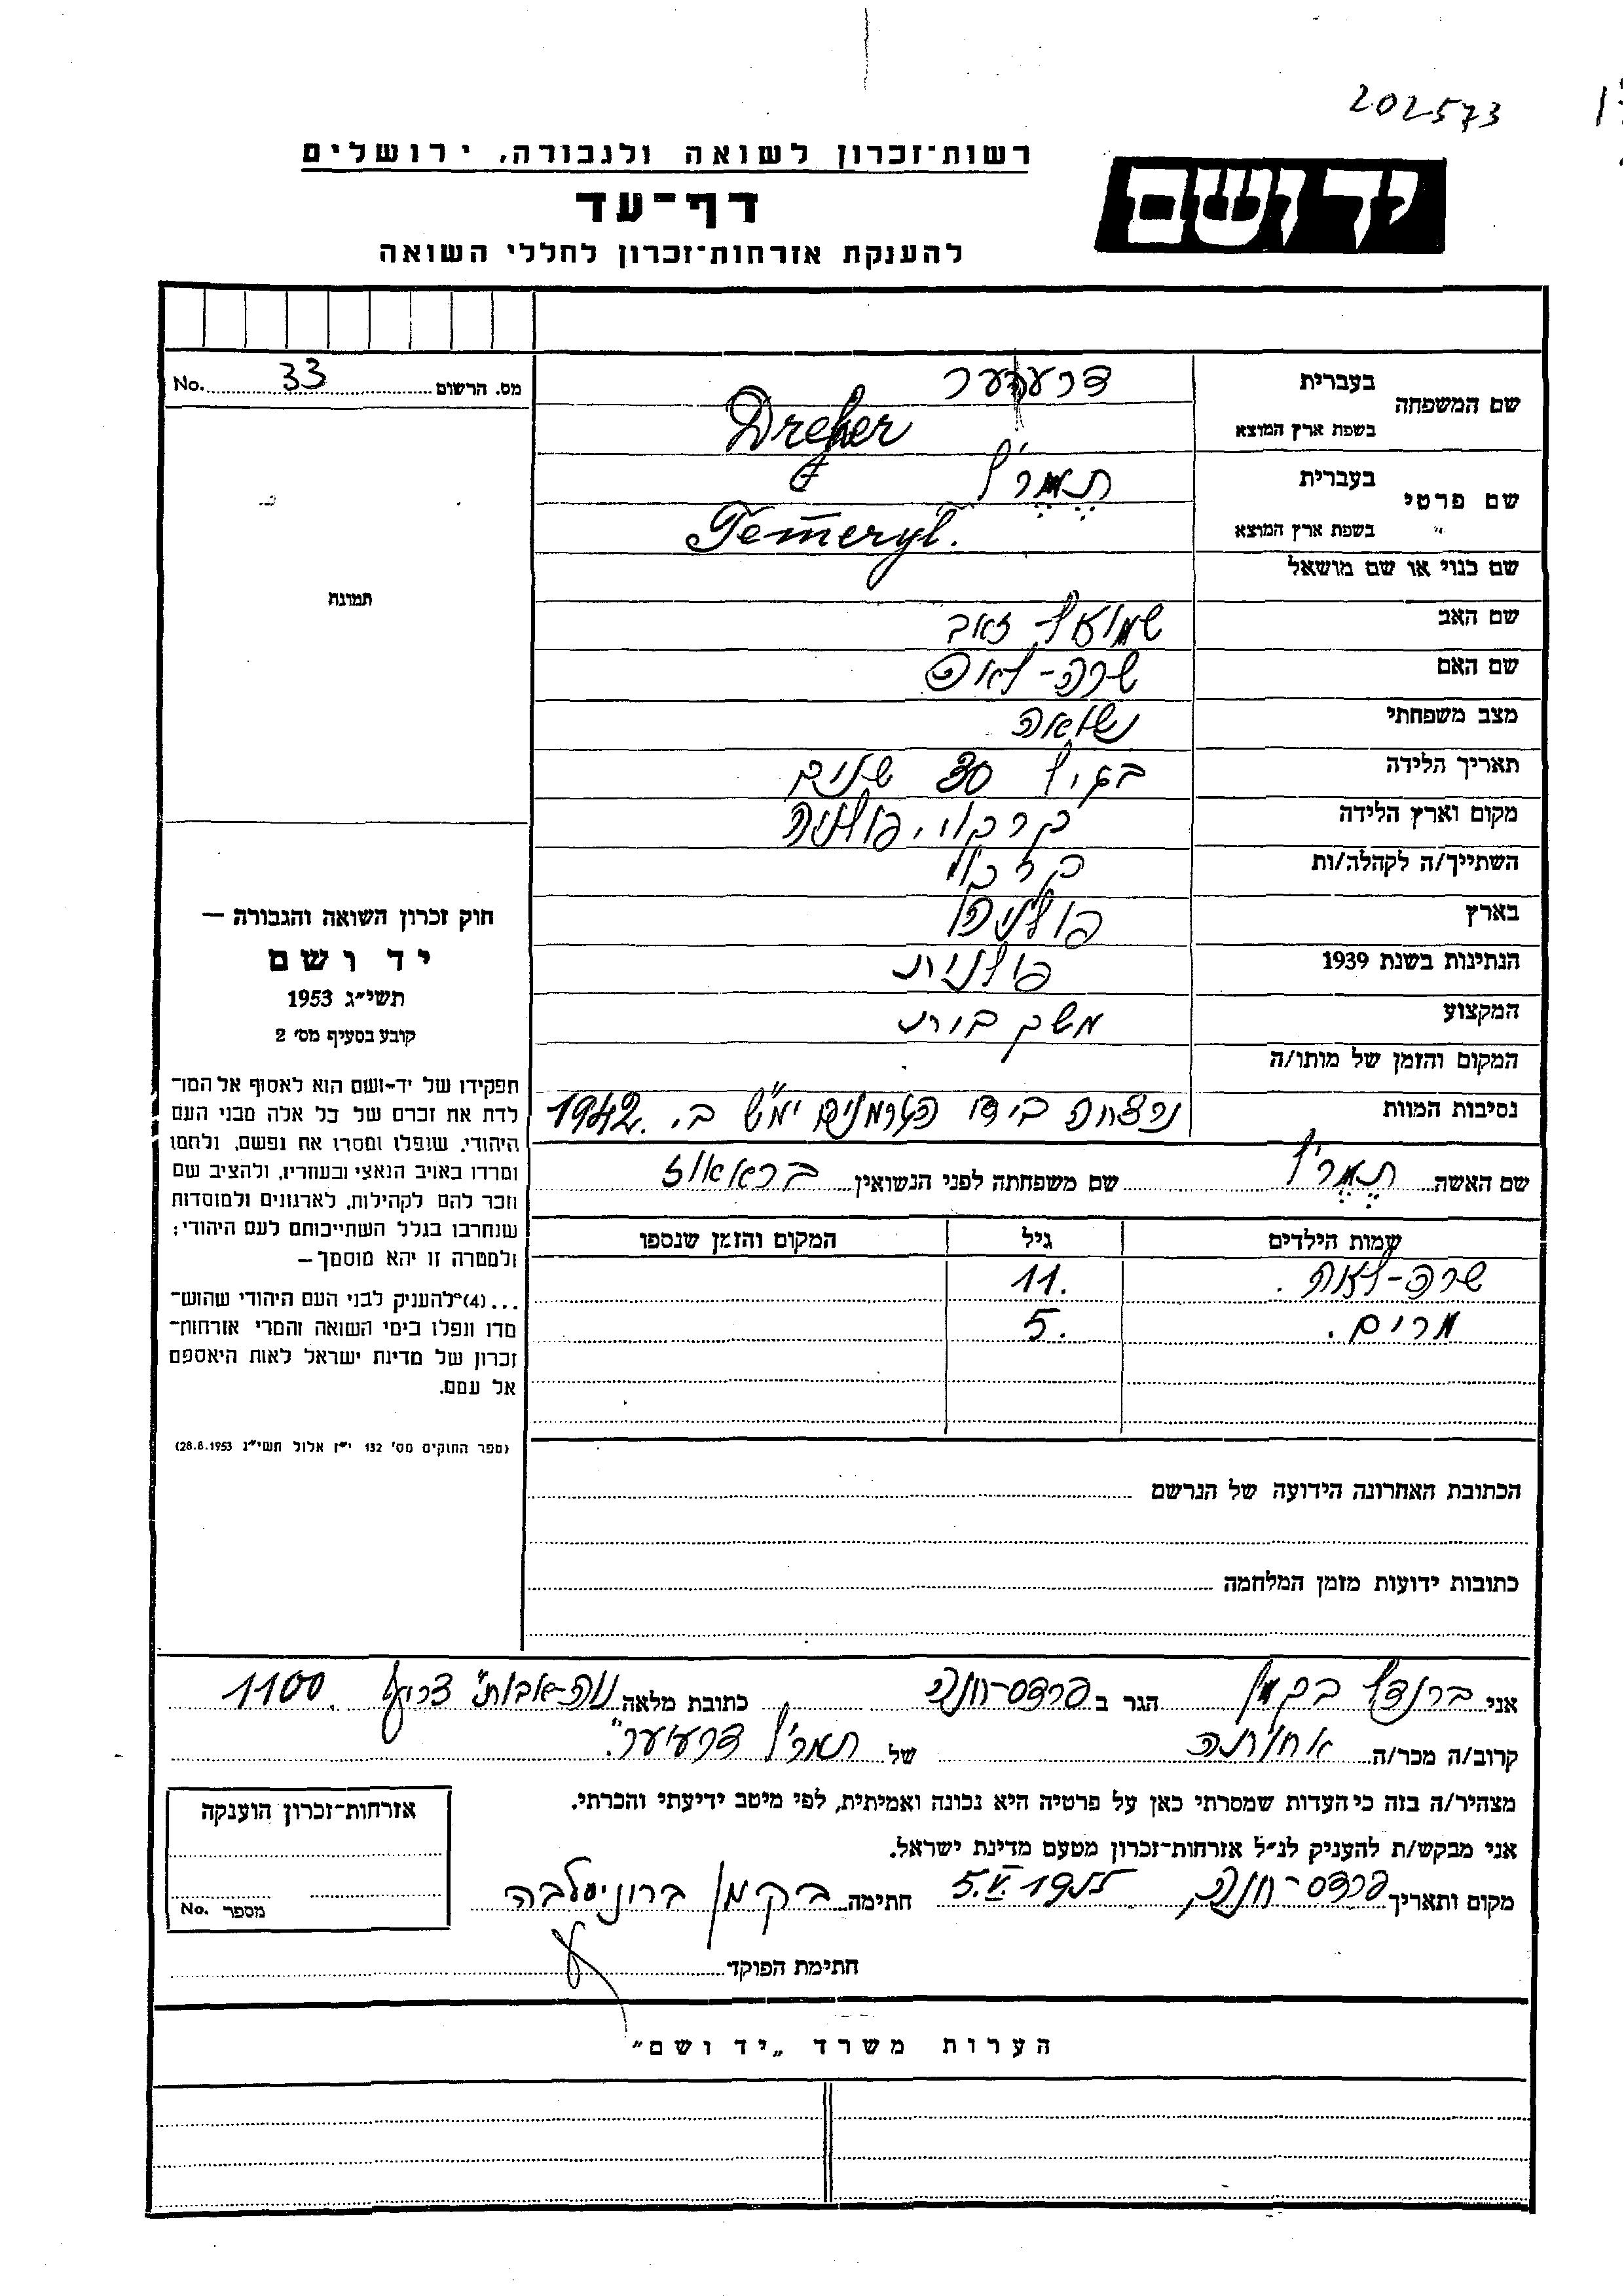 202573
רשות־זכרון לשואה ולגבורה, ירושלים
יד ושם
דף־עד
להענקת אזרחות־זכרון לחללי השואה
מס. הרשום 33 No.
שם המשפחה בעברית
בשפת ארץ המוצא Dreher
שם פרטי בעברית תמרי׳ל
" בשפת ארץ המוצא Temeryl.
שם כנוי או שם מושאל
שם האב שמועל זאב
שם האם שרה-לאה
מצב משפחתי נשואה
תאריך הלידה בגיל 30 שנים
מקום וארץ הלידה קרקוי, פולניה
השתייך/ה לקהלה/ות
בארץ
הנתינות בשנת 1939 פולנית
המקצוע משק בית
המקום והזמן של מותו/ה
נסיבות המוות נרצחה בידי הגרמנים ימ"ש ב. 1942.
שם האשה תמרי׳ל שם משפחתה לפני הנשואין
שמות הילדים גיל המקום והזמן שנספו
שרה-לאה. 11.
מרים. 5.
הכתובת האחרונה הידועה של הנרשם
כתובות ידועות מזמן המלחמה
תמונה
חוק זכרון השואה והגבורה —
יד ושם
תשי״ג 1953
קובע בסעיף מס׳ 2
תפקידו של יד-ושם הוא לאסוף אל המו־
לדת את זכרם של כל אלה מבני העם
היהודי, שנפלו ומסרו את נפשם, נלחמו
ומרדו באויב הנאצי ובעוזריו, ולהציב שם
וזכר להם לקהילות, לארגונים ולמוסדות
שנחרבו בגלל השתייכותם לעם היהודי;
ולמטרה זו יהא מוסמך —
...(4) להעניק לבני העם היהודי שהוש־
מדו ונפלו בימי השואה והמרי אזרחות־
זכרון של מדינת ישראל לאות היאספם
אל עמם.
(ספר החוקים מס׳ 132 י״ז אלול תשי״ג 28.8.1953)
אני ברונדל בקמן הגר ב פרדס-חנה כתובת מלאה נוה-אבות" צריף 1100.
קרוב/ה מכר/ה אחותה של תמרי׳ל
מצהיר/ה בזה כי העדות שמסרתי כאן על פרטיה היא נכונה ואמיתית, לפי מיטב ידיעתי והכרתי.
אני מבקש/ת להעניק לנ״ל אזרחות־זכרון מטעם מדינת ישראל.
מקום ותאריך פרדס-חנה, 5.V.1955 חתימה בקמן ברוניסלבה
חתימת הפוקד
אזרחות־זכרון הוענקה
מספר No.
הערות משרד „יד ושם"